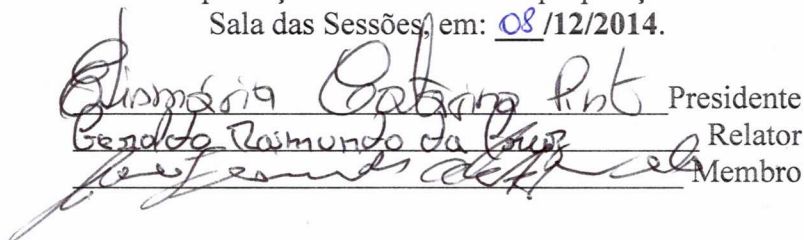 Sala das Sessões, em: 08/12/2014.
Elismária Catarina Pinto Presidente
Geraldo Raimundo da Cruz Relator
Membro